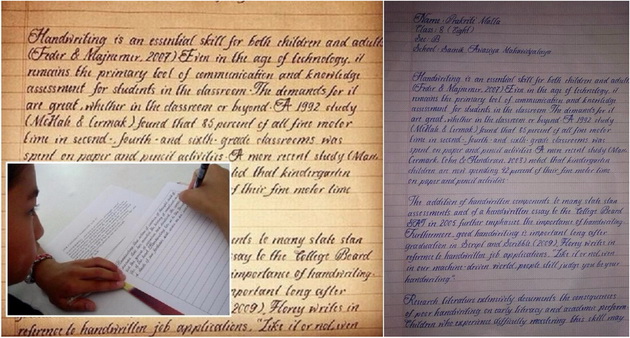 Handwriting is an essential skill for both children and adults
(Feder & Majnemer, 2007) Even in the age of technology, it
remains the primary tool of communication and knowledge
assessment for students in the classroom. The demands for it
are great, whether in the classroom or beyond. A 1992 study
(McHale & Cermak) found that 85 percent of all fine motor
time in second-, fourth- and sixth-grade classrooms was
spent on paper and pencil activities. A more recent study (Marr,
ted that kindergarten
f their fine motor time
nts to many state stan
ssay to the College Board
importance of handwriting.
portant long after
2009), Florey writes in
reference to handwritten job applications, "Like it or not, even
Name:- Prakriti Malla
Class:- 8 (Eight)
Sec:- B
School:- Sainik Awasiya Mahavidyalaya
Handwriting is an essential skill for both children and adults
(Feder & Majnemer, 2007) Even in the age of technology, it
remains the primary tool of communication and knowledge
assessment for students in the classroom. The demands for it
are great, whether in the classroom or beyond. A 1992 study
(McHale & Cermak) found that 85 percent of all fine motor
time in second-, fourth- and sixth-grade classrooms was
spent on paper and pencil activities. A more recent study (Marr,
Cermak, Cohn & Henderson, 2003) noted that kindergarten
children are now spending 42 percent of their fine motor time
on paper and pencil activities.
The addition of handwritten components to many state stan
assessments, and of a handwritten essay to the College Board
SAT in 2005 further emphasize the importance of handwriting.
Furthermore, good handwriting is important long after
graduation in Script and Scribble (2009), Florey writes in
reference to handwritten job applications, "Like it or not, even
in our machine-driven world, people still judge you by your
handwriting."
Research literature extensively documents the consequences
of poor handwriting on early literacy and academic perform
Children who experience difficulty mastering this skill may